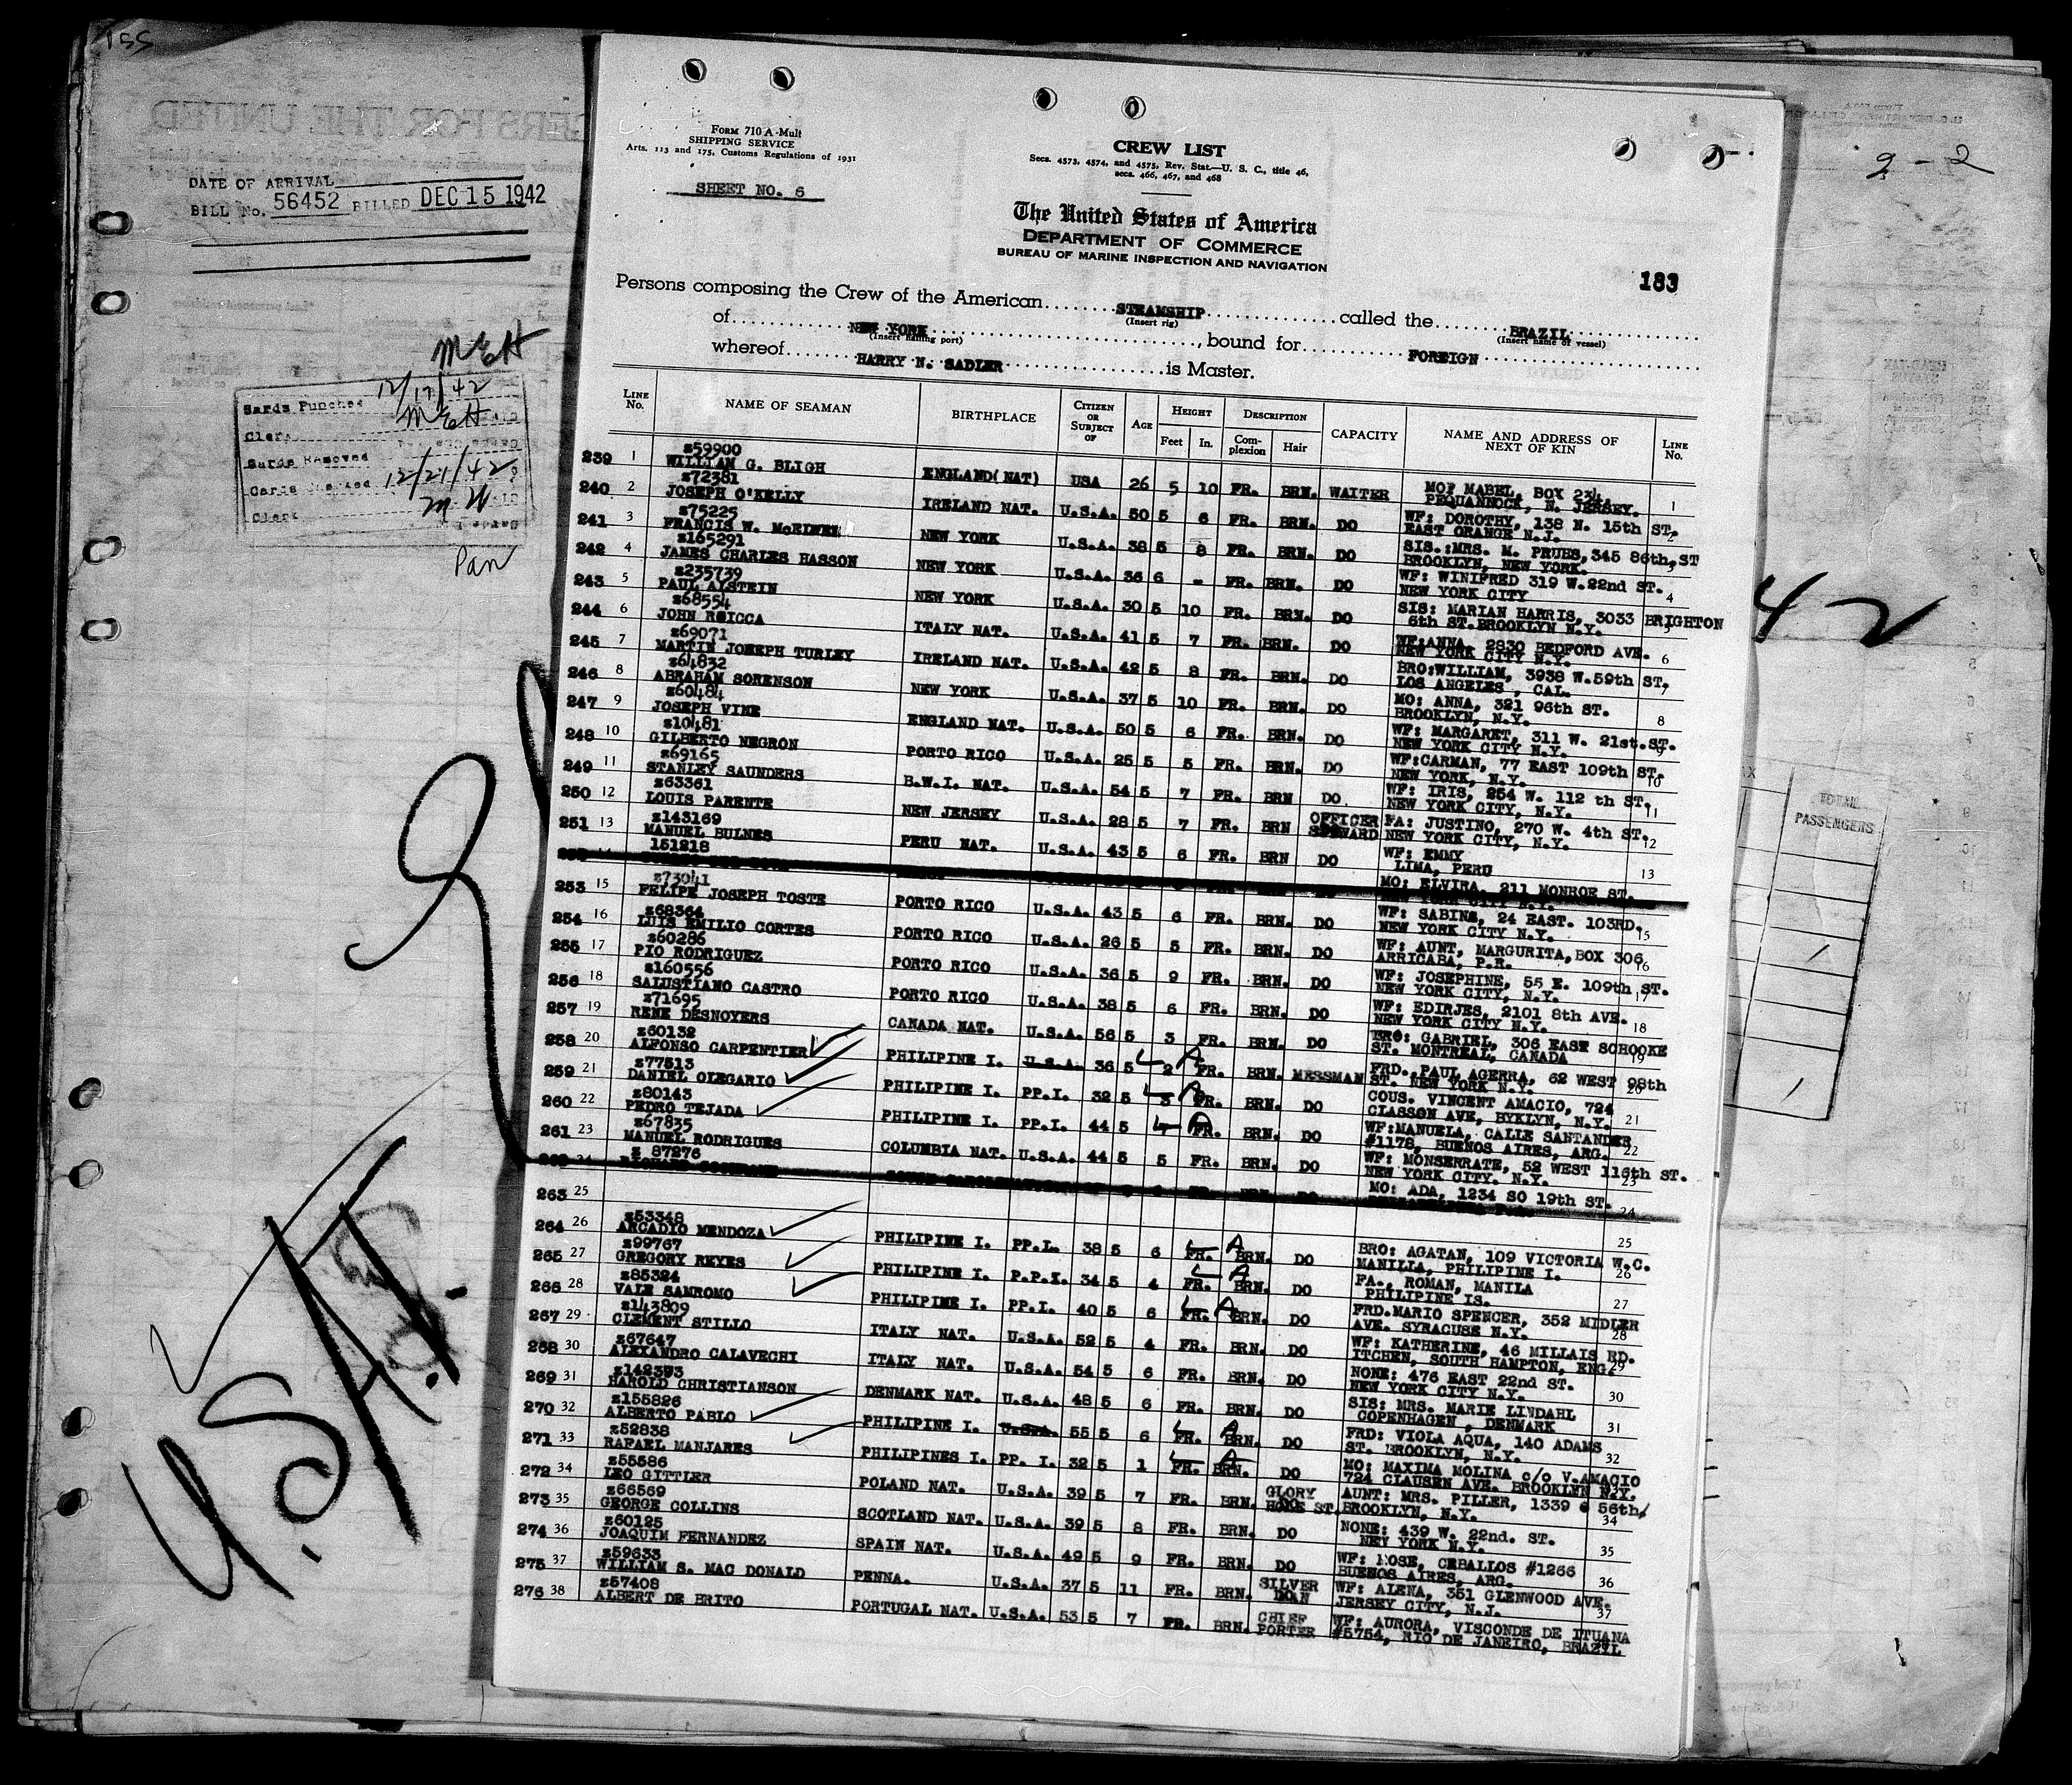 155
DATE OF ARRIVAL
BILL No. 56452 BILLED DEC 15 1942
McH
Cards Punched 12/17/42
Clerk McH
Cards Removed
Cards 12/21/42
Clerk MW
Pan
U.S.A.T.
2 - 2
42
TOTAL
PASSENGERS
FORM 710 A-Mult
SHIPPING SERVICE
Arts. 113 and 175, Customs Regulations of 1931
SHEET NO. 6
CREW LIST
Secs. 4573, 4574, and 4575, Rev. Stat.—U. S. C., title 46,
secs. 466, 467, and 468
The United States of America
DEPARTMENT OF COMMERCE
BUREAU OF MARINE INSPECTION AND NAVIGATION
183
Persons composing the Crew of the American STEAMSHIP called the BRAZIL
(Insert rig) (Insert name of vessel)
of NEW YORK, bound for FOREIGN
(Insert hailing port)
whereof HARRY N. SADLER is Master.
LINE No. NAME OF SEAMAN BIRTHPLACE CITIZEN OR SUBJECT OF AGE HEIGHT Feet In. DESCRIPTION Complexion Hair CAPACITY NAME AND ADDRESS OF NEXT OF KIN LINE No.
z59900
239 1 WILLIAM G. BLIGH ENGLAND(NAT) USA 26 5 10 FR. BRN. WAITER MO: MABEL, BOX 234, PEQUANNOCK, N. JERSEY. 1
z72381
240 2 JOSEPH O'KELLY IRELAND NAT. U.S.A. 50 5 6 FR. BRN. DO WF: DOROTHY, 138 N. 15th ST. EAST ORANGE N.J. 2
z75225
241 3 FRANCIS W. McELWEN NEW YORK U.S.A. 38 5 8 FR. BRN. DO SIS.:MRS. M. PRUHS, 345 86th, ST BROOKLYN, NEW YORK. 3
z165291
242 4 JAMES CHARLES HASSON NEW YORK U.S.A. 36 6 - FR. BRN. DO WF: WINIFRED 319 W.22nd ST. NEW YORK CITY 4
z235739
243 5 PAUL ALSTEIN NEW YORK U.S.A. 30 5 10 FR. BRN. DO SIS: MARIAN HARRIS, 3033 BRIGHTON 6th ST.BROOKLYN N.Y. 5
z68554
244 6 JOHN ROICCA ITALY NAT. U.S.A. 41 5 7 FR. BRN. DO WF:ANNA, 2830 BEDFORD AVE. NEW YORK CITY N.Y. 6
z69071
245 7 MARTIN JOSEPH TURLEY IRELAND NAT. U.S.A. 42 5 8 FR. BRN. DO BRO:WILLIAM, 3938 W.59th ST. LOS ANGELES, CAL. 7
z64832
246 8 ABRAHAM SORENSON NEW YORK U.S.A. 37 5 10 FR. BRN. DO MO: ANNA, 321 96th ST. BROOKLYN, N.Y. 8
z60484
247 9 JOSEPH VINE ENGLAND NAT. U.S.A. 50 5 6 FR. BRN. DO WF: MARGARET, 311 W. 21st.ST. NEW YORK CITY N.Y. 9
z10481
248 10 GILBERTO NEGRON PORTO RICO U.S.A. 25 5 5 FR. BRN. DO WF:CARMAN, 77 EAST 109th ST. NEW YORK, N.Y. 10
z69165
249 11 STANLEY SAUNDERS B.W.I. NAT. U.S.A. 54 5 7 FR. BRN DO WF: IRIS, 254 W. 112 th ST. NEW YORK CITY, N.Y. 11
z63361
250 12 LOUIS PARENTE NEW JERSEY U.S.A. 28 5 7 FR. BRN OFFICER STEWARD FA: JUSTINO, 270 W. 4th ST. NEW YORK CITY, N.Y. 12
z143169
251 13 MANUEL BULNES PERU NAT. U.S.A. 43 5 6 FR. BRN DO WF: EMMY LIMA, PERU 13
151218
MO: ELVIRA, 211 MONROE ST. NEW YORK CITY N.Y.
z73041
253 15 FELIPE JOSEPH TOSTE PORTO RICO U.S.A. 43 5 6 FR. BRN. DO WF: SABINE, 24 EAST. 103RD. NEW YORK CITY N.Y. 15
z68364
254 16 LUIS EMILIO CORTES PORTO RICO U.S.A. 26 5 5 FR. BRN. DO WF: AUNT, MARGURITA, BOX 306 ARRICABA, P.R. 16
z60286
255 17 PIO RODRIGUEZ PORTO RICO U.S.A. 36 5 9 FR. BRN. DO WF: JOSEPHINE, 55 E. 109th ST. NEW YORK CITY, N.Y. 17
z160556
256 18 SALUSTIANO CASTRO PORTO RICO U.S.A. 38 5 6 FR. BRN. DO WF: EDIRJES, 2101 8th AVE. NEW YORK CITY N.Y. 18
z71695
257 19 RENE DESNOYERS CANADA NAT. U.S.A. 56 5 3 FR. BRN. DO BRO: GABRIEL, 306 EAST SCHOOKE ST. MONTREAL, CANADA
z60132
258 20 ALFONSO CARPENTIER PHILIPINE I. U.S.A. 36 5 2 FR. BRN. MESSMAN FRD., PAUL AGERRA, 62 WEST 98th ST. NEW YORK N.Y. 20
z77513
259 21 DANIEL OLEGARIO PHILIPINE I. PP.I. 32 5 3 FR. BRN. DO COUS. VINCENT AMACIO, 724 CLASSON AVE, BYKLYN, N.Y. 21
z80143
260 22 PEDRO TEJADA PHILIPINE I. PP.I. 44 5 FR. BRN. DO WF:MANUELA, CALLE SANTANDER #1178, BUENOS AIRES, ARG. 22
z67835
261 23 MANUEL RODRIGUES COLUMBIA NAT. U.S.A. 44 5 5 FR. BRN. DO WF: MONSERRATE, 52 WEST 116th ST. NEW YORK CITY. N.Y. 23
z 87276
MO: ADA, 1234 SO 19th ST. 24
263 25 25
z53348
264 26 ARCADIO MENDOZA PHILIPINE I. PP.I. 38 5 6 FR. L A BRN. DO BRO: AGATAN, 109 VICTORIA W.C. MANILLA, PHILIPINE I. 26
z99767
265 27 GREGORY REYES PHILIPINE I. P.P.I. 34 5 4 FR. L A BRN. DO FA., ROMAN, MANILA PHILIPINE IS. 27
z85324
266 28 VALE SAMROMO PHILIPINE I. PP.I. 40 5 6 FR. L A BRN. DO FRD.MARIO SPENCER, 352 MIDLER AVE. SYRACUSE N.Y. 28
z143809
267 29 CLEMENT STILLO ITALY NAT. U.S.A. 52 5 4 FR. BRN. DO WF: KATHERINE, 46 MILLAIS RD. ITCHEN, SOUTH HAMPTON, ENG. 29
z67647
268 30 ALEXANDRO CALAVECHI ITALY NAT. U.S.A. 54 5 6 FR. BRN. DO NONE: 476 EAST 22nd ST. NEW YORK CITY N.Y. 30
z142393
269 31 HAROLD CHRISTIANSON DENMARK NAT. U.S.A. 48 5 6 FR. BRN. DO SIS: MRS. MARIE LINDAHL COPENHAGEN, DENMARK 31
z155826
270 32 ALBERTO PABLO PHILIPINE I. U.S.A. 55 5 6 FR. L A BRN. DO FRD: VIOLA AQUA, 140 ADAMS ST. BROOKLYN, N.Y. 32
z52838
271 33 RAFAEL MANJARES PHILIPINES I. PP. I. 32 5 1 FR. L A BRN. DO MO: MAXIMA MOLINA c/o V.AMACIO 724 CLAUSEN AVE. BROOKLYN N.Y.
z55586
272 34 LEO GITTLER POLAND NAT. U.S.A. 39 5 7 FR. BRN. GLORY HOLE ST. AUNT: MRS. PILLER, 1339 56th, BROOKLYN, N.Y. 34
z66569
273 35 GEORGE COLLINS SCOTLAND NAT. U.S.A. 39 5 8 FR. BRN. DO NONE: 439 W. 22nd. ST. NEY YORK N.Y. 35
z60125
274 36 JOAQUIM FERNANDEZ SPAIN NAT. U.S.A. 49 5 9 FR. BRN. DO WF: ROSE, CEBALLOS #1266 BUENOS AIRES, ARG. 36
z59633
275 37 WILLIAM S. MAC DONALD PENNA. U.S.A. 37 5 11 FR. BRN. SILVER WF: ALENA, 351 GLENWOOD AVE. JERSEY CITY, N.J. 37
z57408
276 38 ALBERT DE BRITO PORTUGAL NAT. U.S.A. 53 5 7 FR. BRN. CHIEF PORTER WF: AURORA, VISCONDE DE ITUANA #5754, RIO DE JANEIRO, BRAZIL